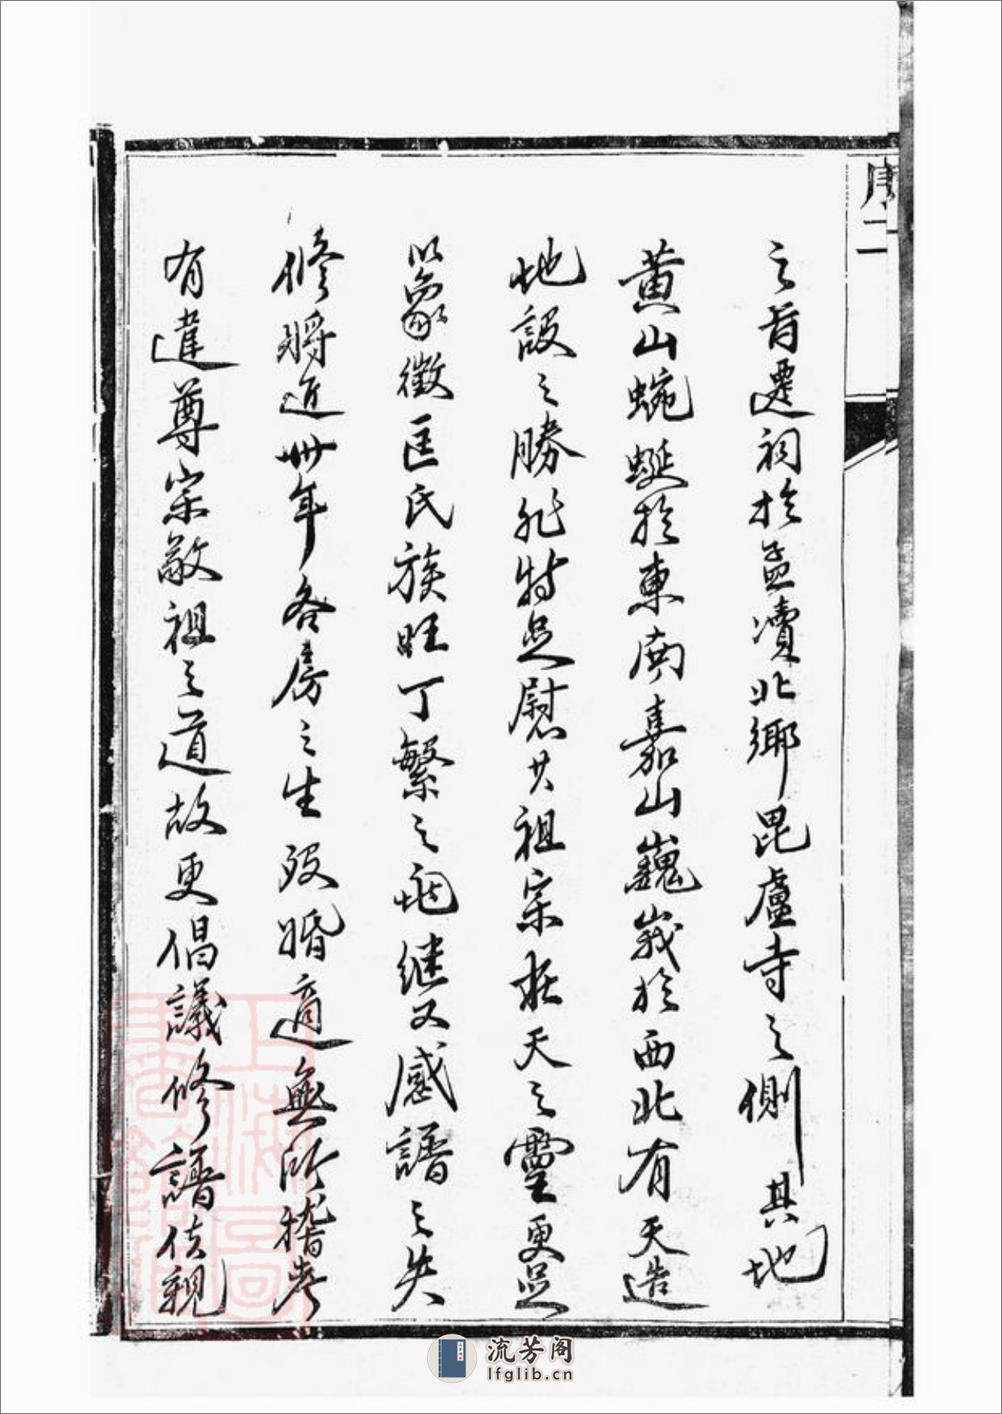 序二
之首遷祠於孟瀆北鄉毘盧寺之側其地
黄山蜿蜒於東南嘉山巍峩於西北有天造
地設之勝非特足慰其祖宗在天之靈更足
以象徵匡氏族旺丁繁之兆继又感譜之失
修將近卅年各房之生殁婚適無所稽考
有違尊宗敬祖之道故更倡議修譜使親
上海圖書館藏
流芳阁
lfglib.cn